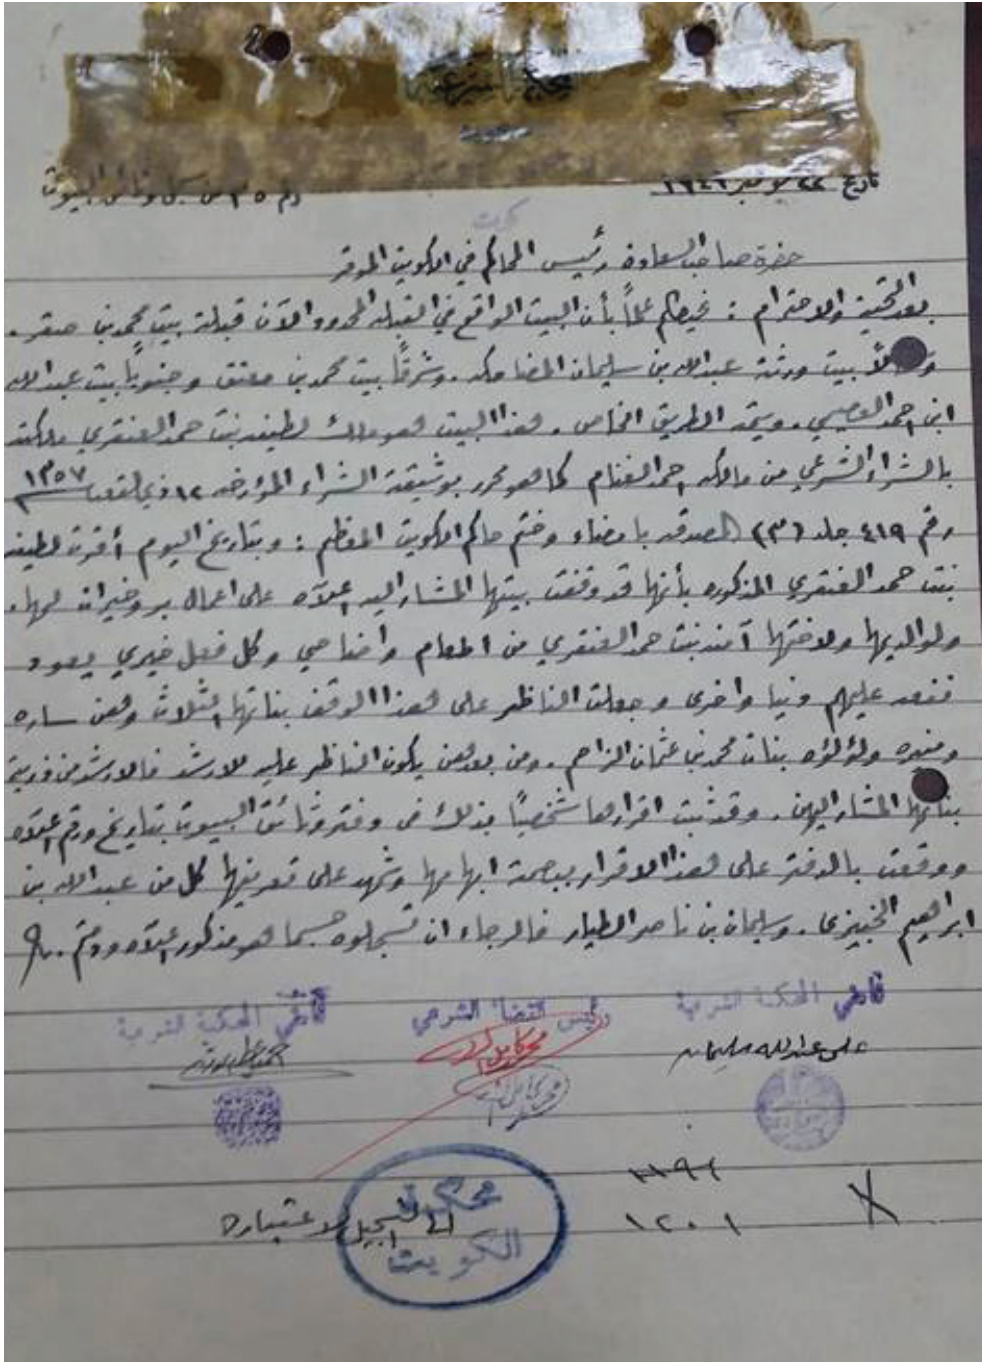 المحكمة الشرعية
تاريخ ٢٢ نوفمبر ١٩٤٦
رقم ٣٥ من سجل وثائق البيوت
كويت
حضرة صاحب السعادة رئيس المحاكم في الكويت الموقر
بعد التحية والاحترام : نحيطكم علماً بأن البيت الواقع في القبلة المحدود الآن قبلة بيت محمد بن صقر .
وشمالاً بيت ورثة عبدالله بن سليمان المضاحكه . وشرقاً بيت محمد بن معتق وجنوباً بيت عبدالله
ابن احمد العصيمي . ويتمه الطريق الخاص . فهذا البيت هو ملك لطيفه بنت حمد العنقري ملكته
بالشراء الشرعي من مالكه احمد الغنام كما هو محرر بوثيقة الشراء المؤرخه ١٢ ذي القعدة ١٣٥٧
رقم ٤١٩ جلد (٣) المصدقه بامضاء وختم حاكم الكويت المعظم : وبتاريخ اليوم أقرت لطيفه
بنت حمد العنقري المذكوره بأنها قد وقفت بيتها المشار اليه اعلاه على اعمال بر وخيرات لها
ولوالديها ولاختها آمنه بنت حمد العنقري من اطعام واضاحي وكل فعل خيري يعود
نفعه عليهم دنيا واخرى وجعلت الناظر على هذا الوقف بناتها الثلاث وهن ساره
ومنيره ولؤلؤه بنات محمد بن عثمان الزاحم . ومن بعدهن يكون الناظر عليه للارشد فالارشد من ذرية
بناتها المشار اليهن . وقد ثبت اقرارها شخصياً بذلك في دفتر وثائق البيوت بتاريخ ورقم اعلاه
ووقعت بالدفتر على هذا الاقرار ببصمة ابهامها وشهد على تعريفها كل من عبدالله بن
ابراهيم الخبيزي . وسليمان بن ناصر الطيار فالرجاء ان تسجلوه حسبما هو مذكور اعلاه ودمتم .
قاضي المحكمة الشرعية
رئيس القضاء الشرعي
قاضي المحكمة الشرعية
علي عبدالله سليمان
١١٩٢
١٢٠١
محكمة
الكويت